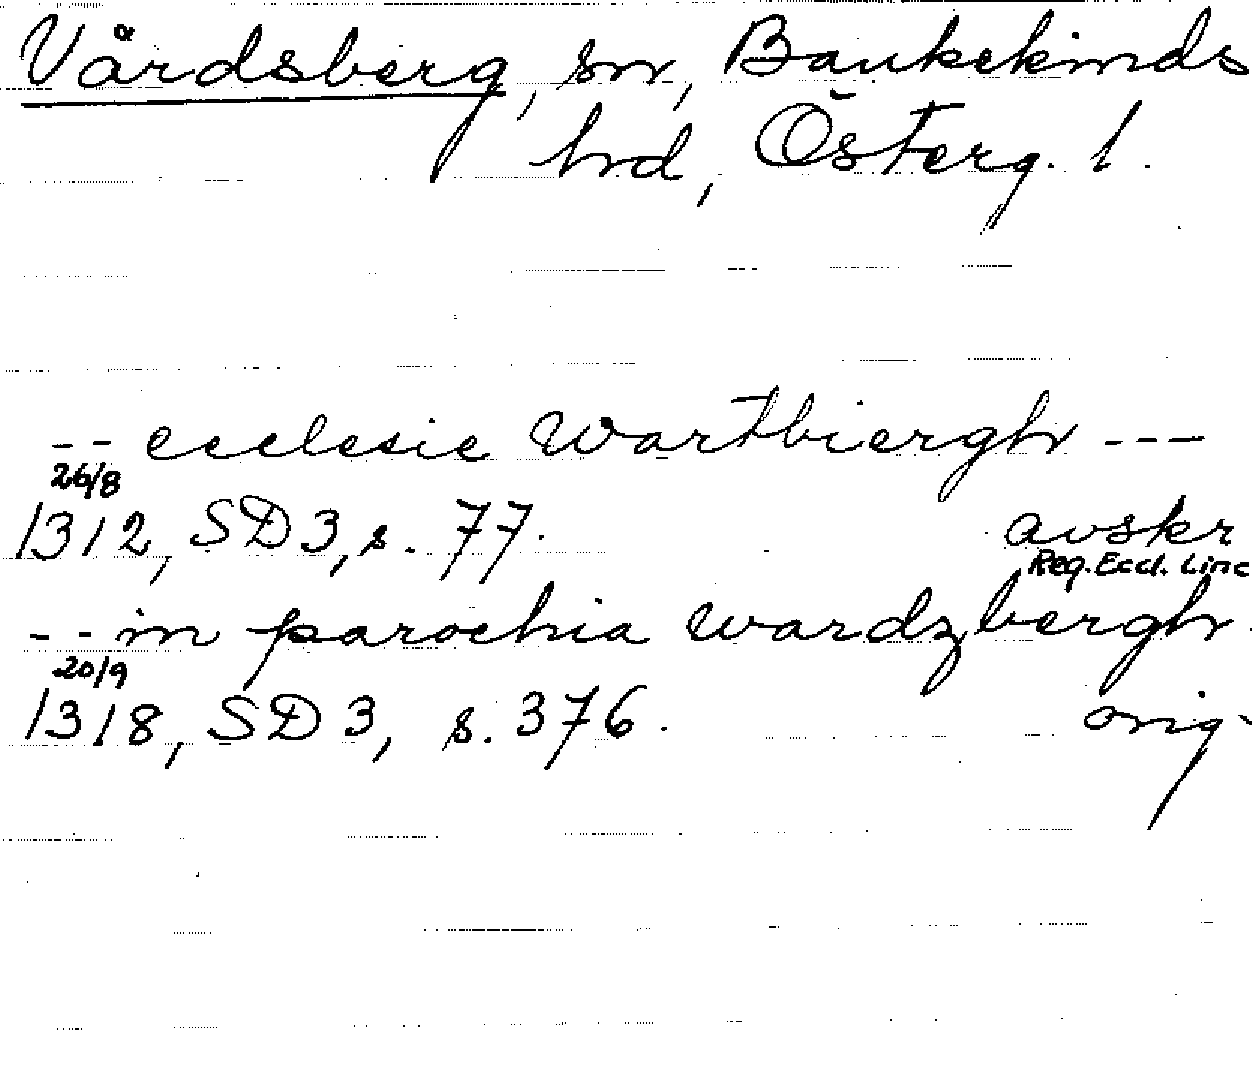 Vårdsberg, sn, Bankekinds
hrd, Österg. l.
-- ecclesie Wartbiergh ---
26/8
1312, SD 3, s. 77. avskr
Reg. Eccl. Linc
-- in parochia wardzbergh.
20/9
1318, SD 3, s. 376. orig.